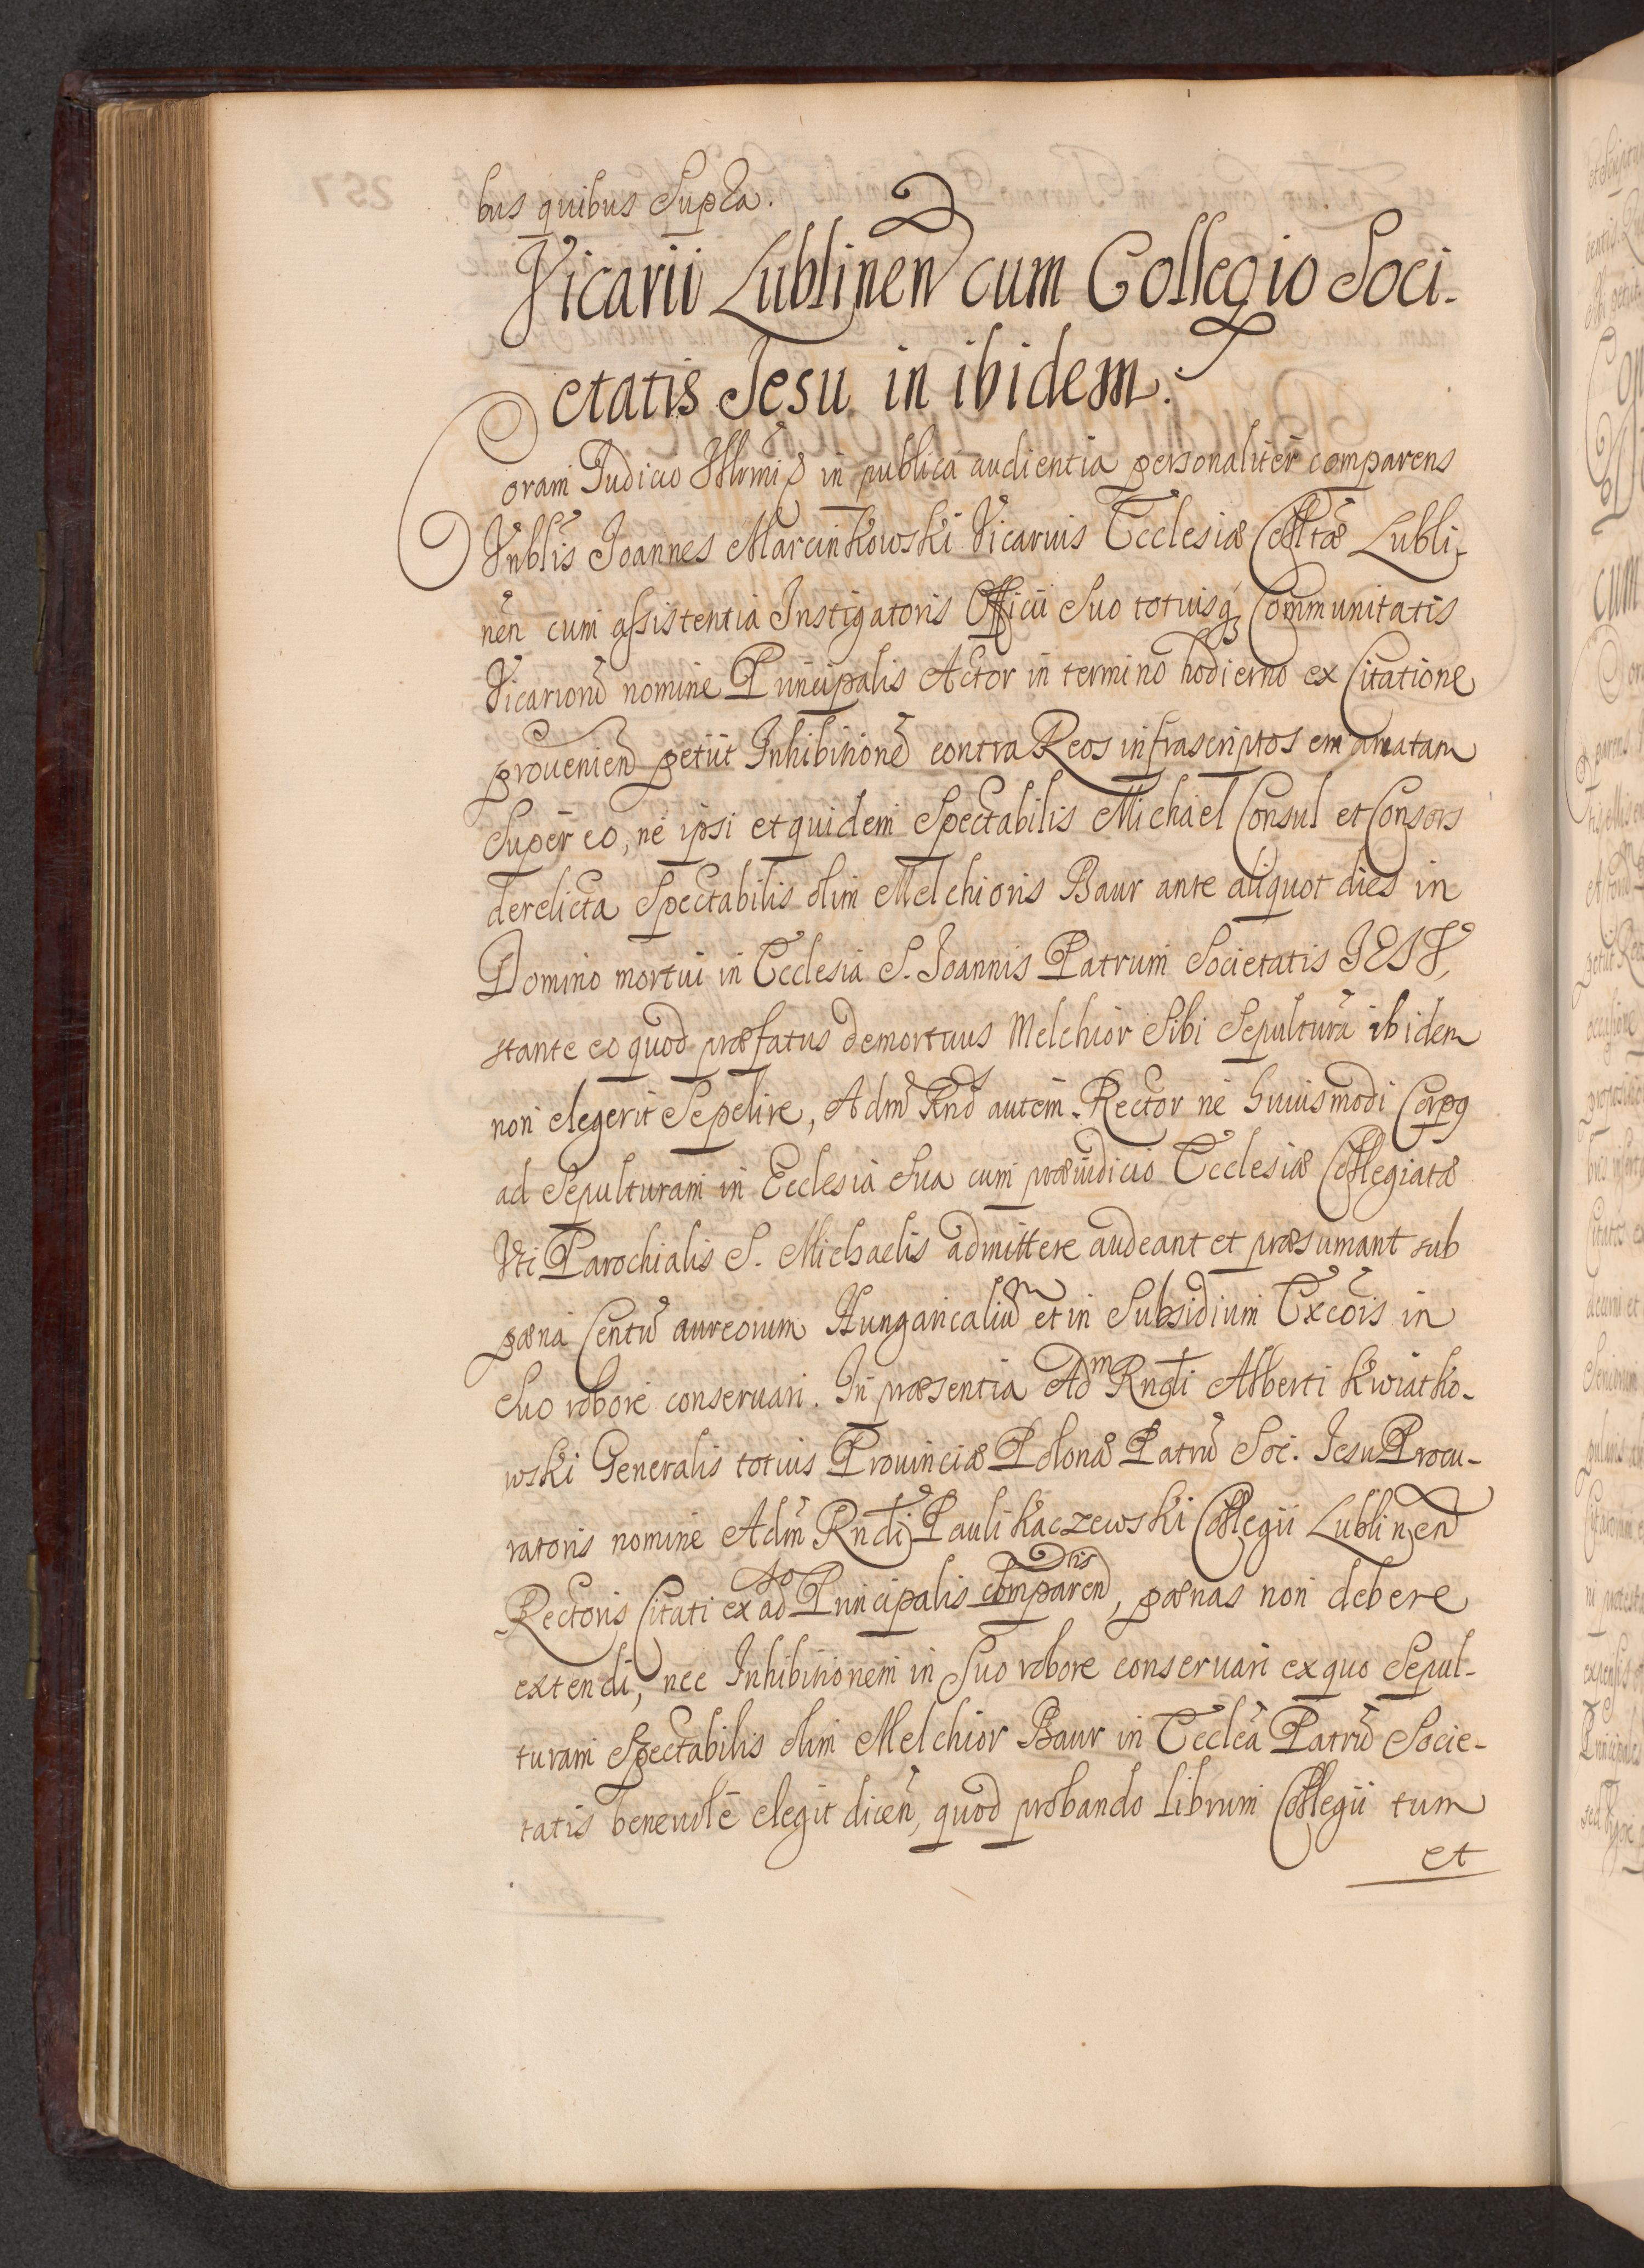 bus quibus Supra.
Vicarii Lublinen cum Collegio Soci-
etatis Jesu in ibidem.
Coram Judicio Illrmi in publica audientia personaliter comparens
Vnblis Joannes Marcinkowski Vicarius Ecclesiæ Colltæ Lubli-
nen cum assistentia Instigatoris Officii Suo totiusq Communitatis
Vicariorũ nomine Principalis Actor in termino hodierno ex Citatione
provenien petiit Inhibitionẽ contra Reos infrascriptos emanatam
Super eo, ne ipsi et quidem Spectabilis Michael Consul et Consors
derelicta Spectabilis olim Melchioris Baur ante aliquot dies in
Domino mortui in Ecclesia S. Joannis Patrum Societatis JESV,
stante eo quod præfatus demortuus Melchior Sibi Sepulturã ibidem
non elegerit Sepelire, Adm Rnd autem Rector ne huiusmodi Corpg
ad Sepulturam in Ecclesia Sua cum præiudicio Ecclesiæ Collegiatæ
Vti Parochialis S. Michaelis admittere audeant et præsumant sub
pæna Centũ aureorum Hungaricaliũm et in Subsidium Excõis in
Suo robore conseruari. In præsentia Adm Rndi Alberti Kwiatko-
wski Generalis totius Prouinciæ Polonæ Patrũ Soc. Jesu Procu-
ratoris nomine Adm Rndi Pauli Kaczewski Collegii Lublinen
Rectoris Citati ex adso Principalis comparentis, pænas non debere
extendi, nec Inhibitionem in Suo robore conseruari ex quo Sepul-
turam Spectabilis olim Melchior Baur in Ecclea Patrũ Socie-
tatis beneuole elegit dicen, quod probando librum Collegii tum
et